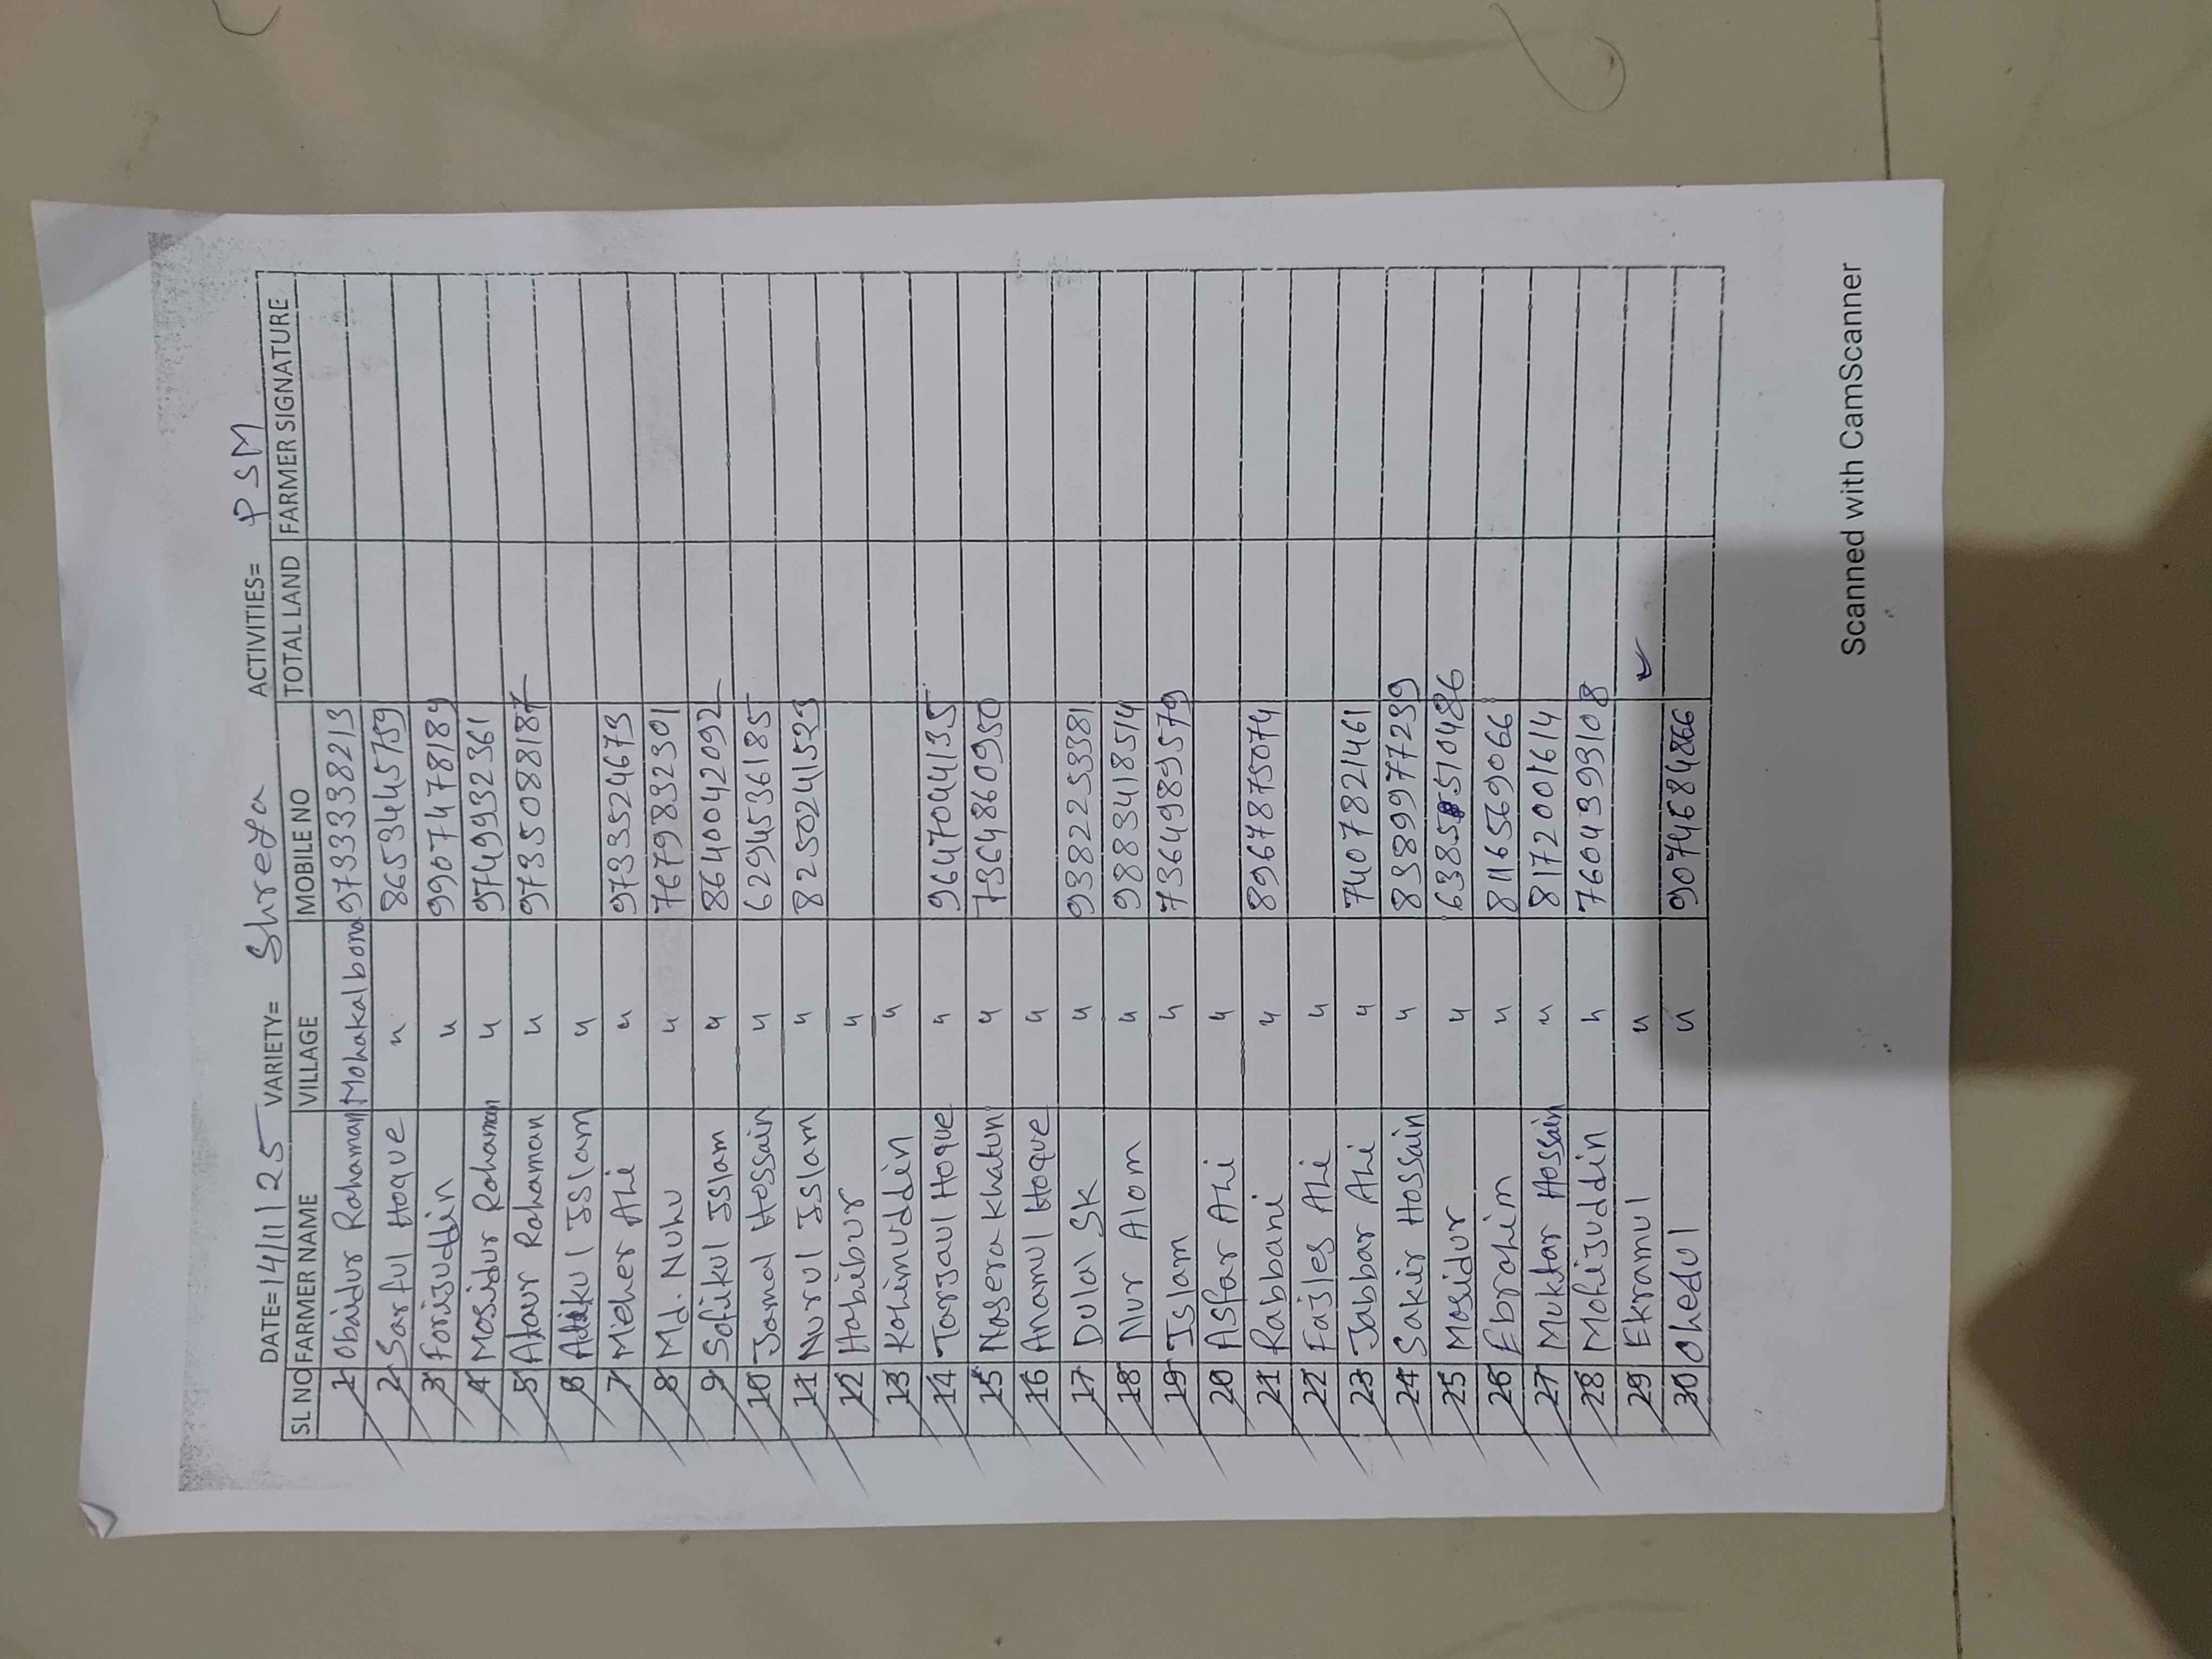 DATE= 14/11/25 VARIETY= Shreya ACTIVITIES= PSM
SL NO FARMER NAME VILLAGE MOBILE NO TOTAL LAND FARMER SIGNATURE
1 Obaidur Rahaman Mohakalbona 9733338213
2 Sarful Hoque " 8653445759
3 Forijuddin " 9907478189
4 Mosidur Rahaman " 9749932361
5 Ataur Rahaman " 9735088187
6 Islam "
7 Meher Ali " 9733524673
8 Md. Nuhu " 7679832301
9 Sofikul Islam " 8640042092
10 Jamal Hossain " 6294536185
11 Nurul Islam " 8250241523
12 Habibur "
13 Kohimuddin "
14 Tarjaul Hoque " 9647044135
15 Nasera Khatun " 7364860950
16 Anamul Hoque "
17 Dulal Sk " 9382253381
18 Nur Alom " 9883418514
19 Islam " 7364989579
20 Asfar Ali "
21 Rabbani " 8967875074
22 Fajles Ali "
23 Jabbar Ali " 7407821461
24 Sakir Hossain " 8389977239
25 Mosidur "
26 Ebrahim " 8116569066
27 Muktar Hossain " 8172001614
28 Mofijuddin " 7604399108
29 Ekramul "
30 Ohedul " 9074684866
Scanned with CamScanner